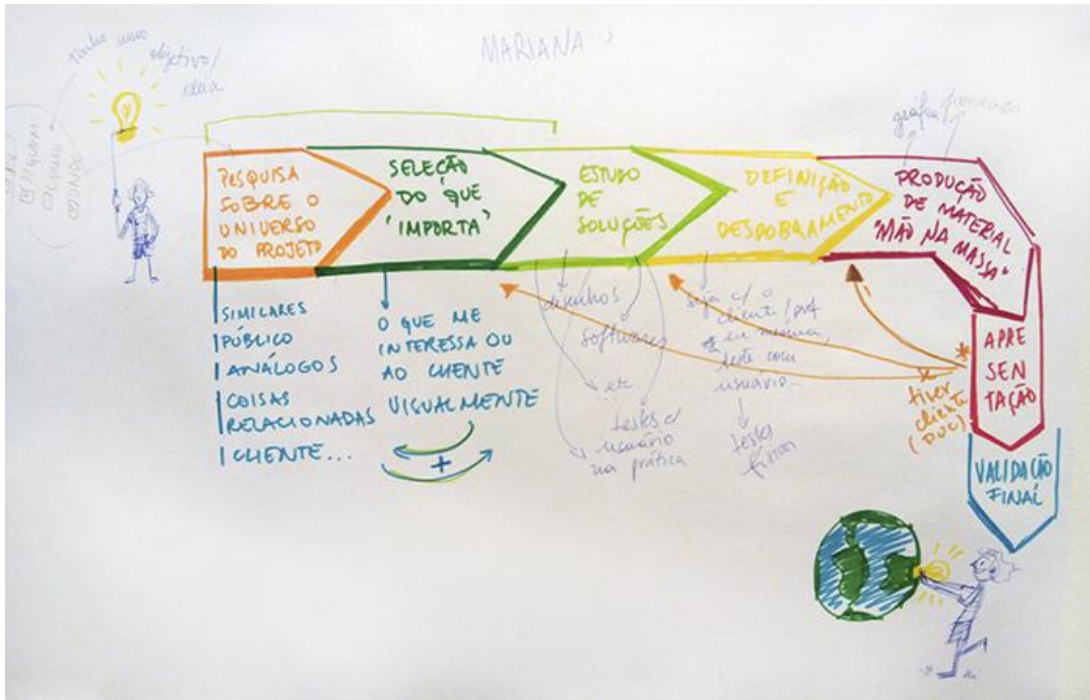 MARIANA
tenho uma
objetivo/
ideia
gráfica
PESQUISA
SOBRE O
UNIVERSO
DO PROJETO
SELEÇÃO
DO QUE
"IMPORTA"
ESTUDO
DE
SOLUÇÕES
DEFINIÇÃO
E
DESDOBRAMENTO
PRODUÇÃO
DE MATERIAL
"MÃO NA MASSA"
APRE
SEN
TAÇÃO
VALIDAÇÃO
FINAL
SIMILARES
PÚBLICO
ANÁLOGOS
COISAS
RELACIONADAS
CLIENTE...
O QUE ME
INTERESSA OU
AO CLIENTE
VISUALMENTE
+
desenhos
softwares
etc
...
testes c/
usuário
na prática
seja c/ o
cliente/prof
eu mesma,
teste com
usuário...
testes
físicos
*
* tiver
cliente
(DUC)